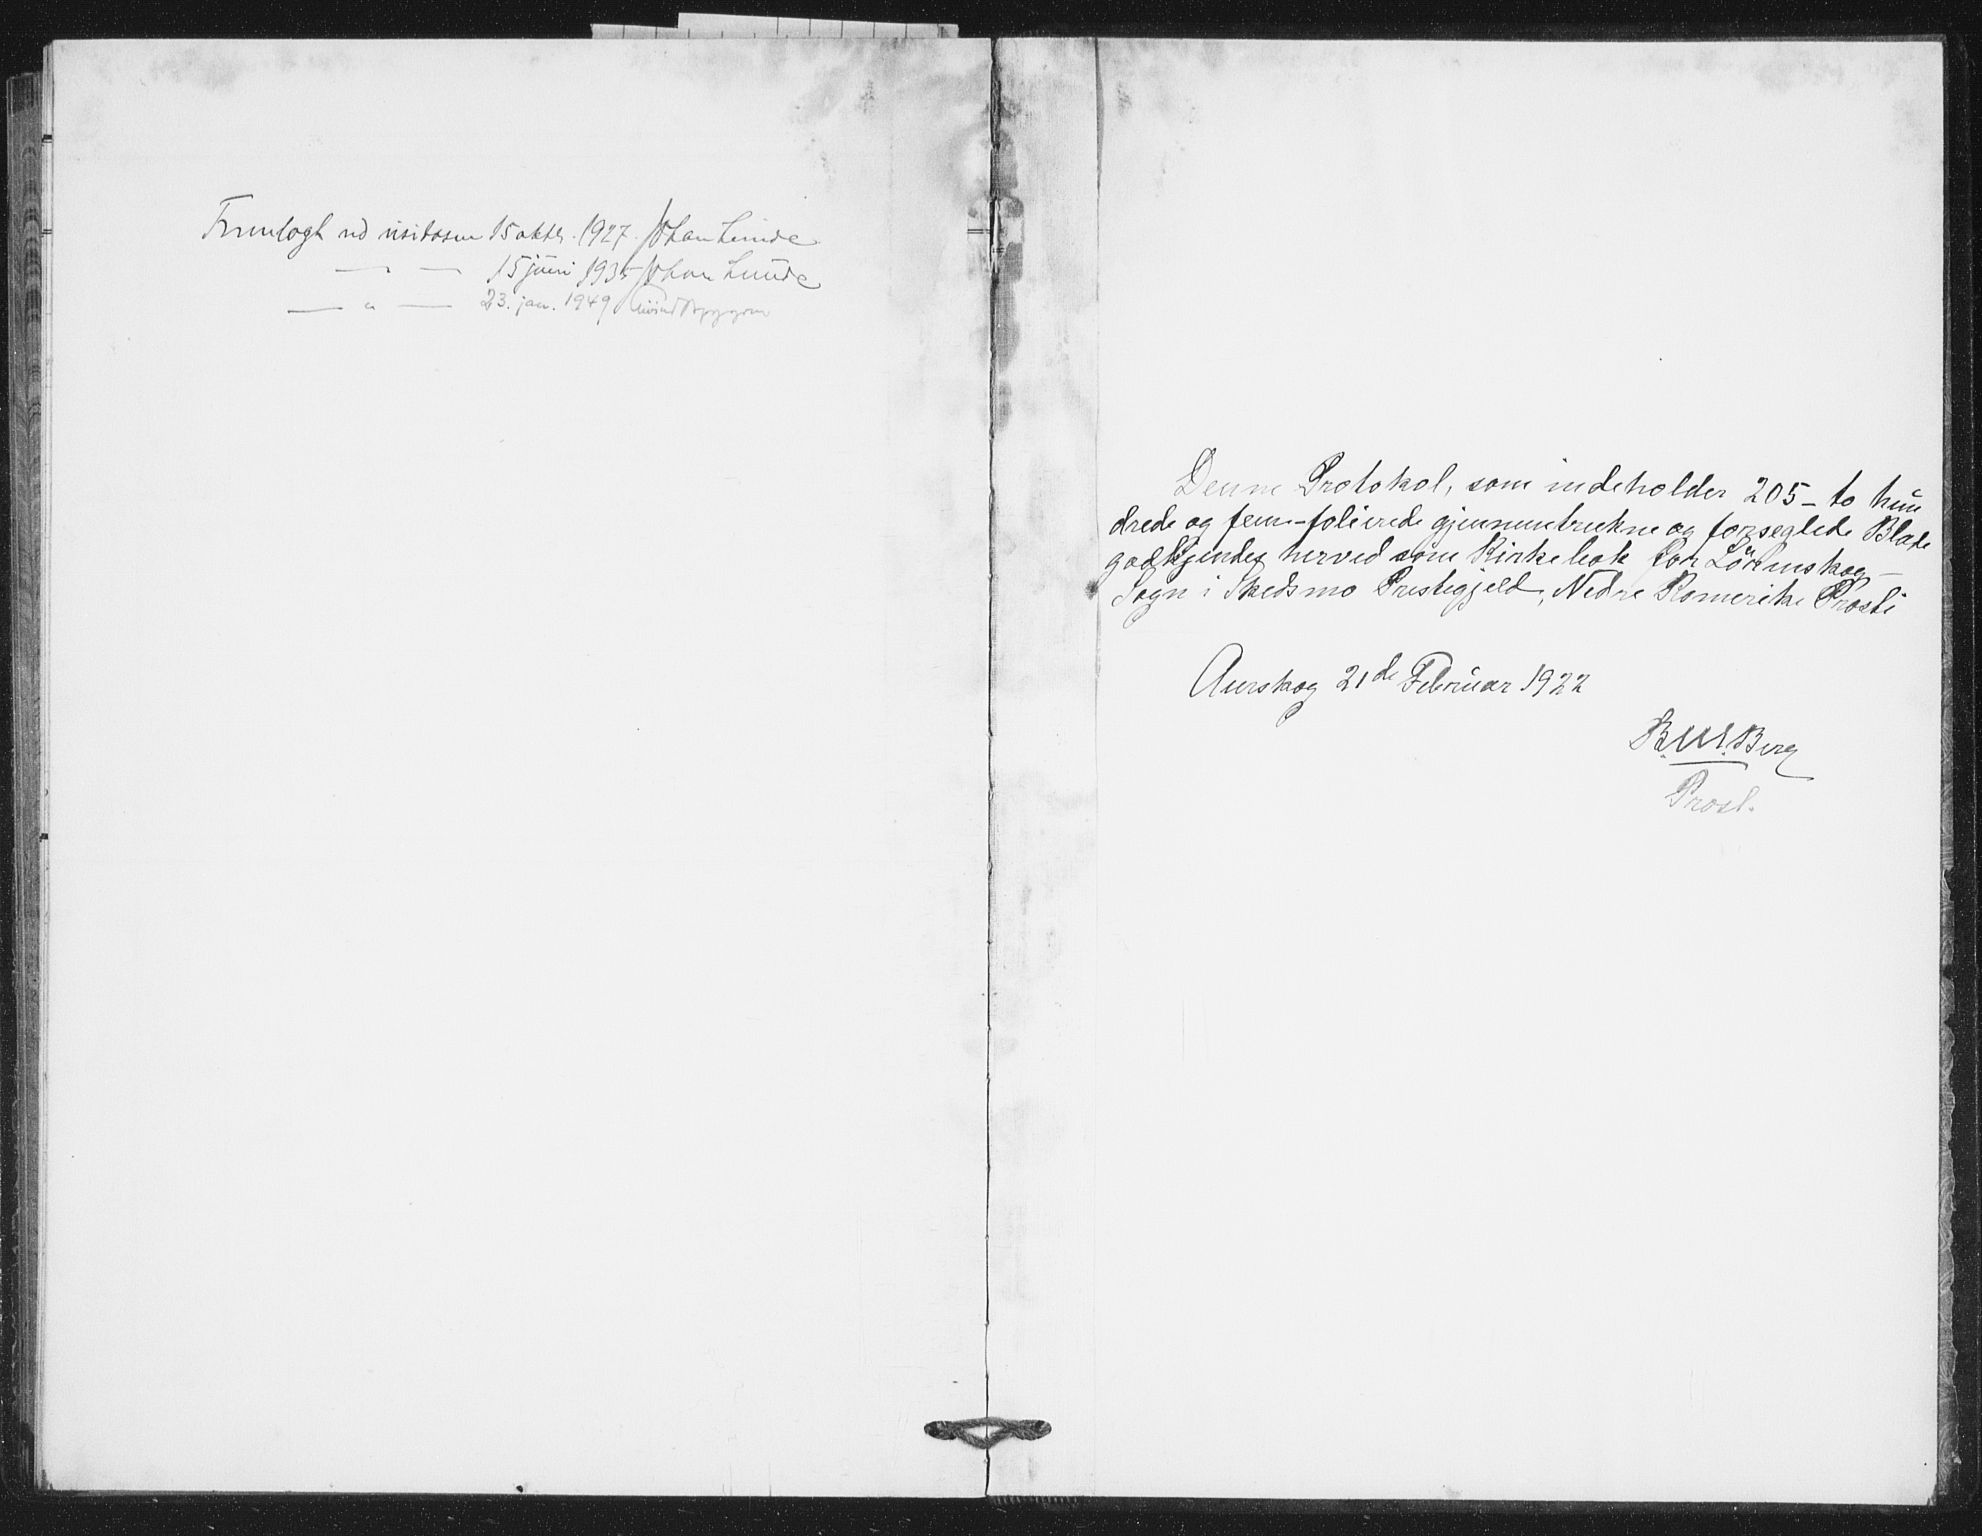 Fremlagt ved visitasen 15 oktb. 1927. Johan Lunde
— — 15 juni 1935 Johan Lunde
— " — 23. jan. 1949 Eivind Berggrav
Denne Protokol, som indeholder 205 – to hun
drede og fem – folierede gjennemtrukne og forseglede Blade
godkjendes herved som Kirkebok for Lörenskog –
Sogn i Skedsmo Prestegjeld, Nedre Romerike Prosti
Aurskog 21de Februar 1922
Berg
Prost.